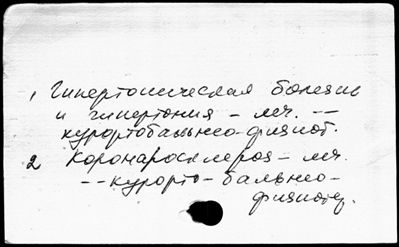 1 Гипертоническая болезнь
и гипертония – леч. --
курортобальнео-физиот.
2 Коронаросклероз – леч.
--курорто-бальнео-
физиотер.